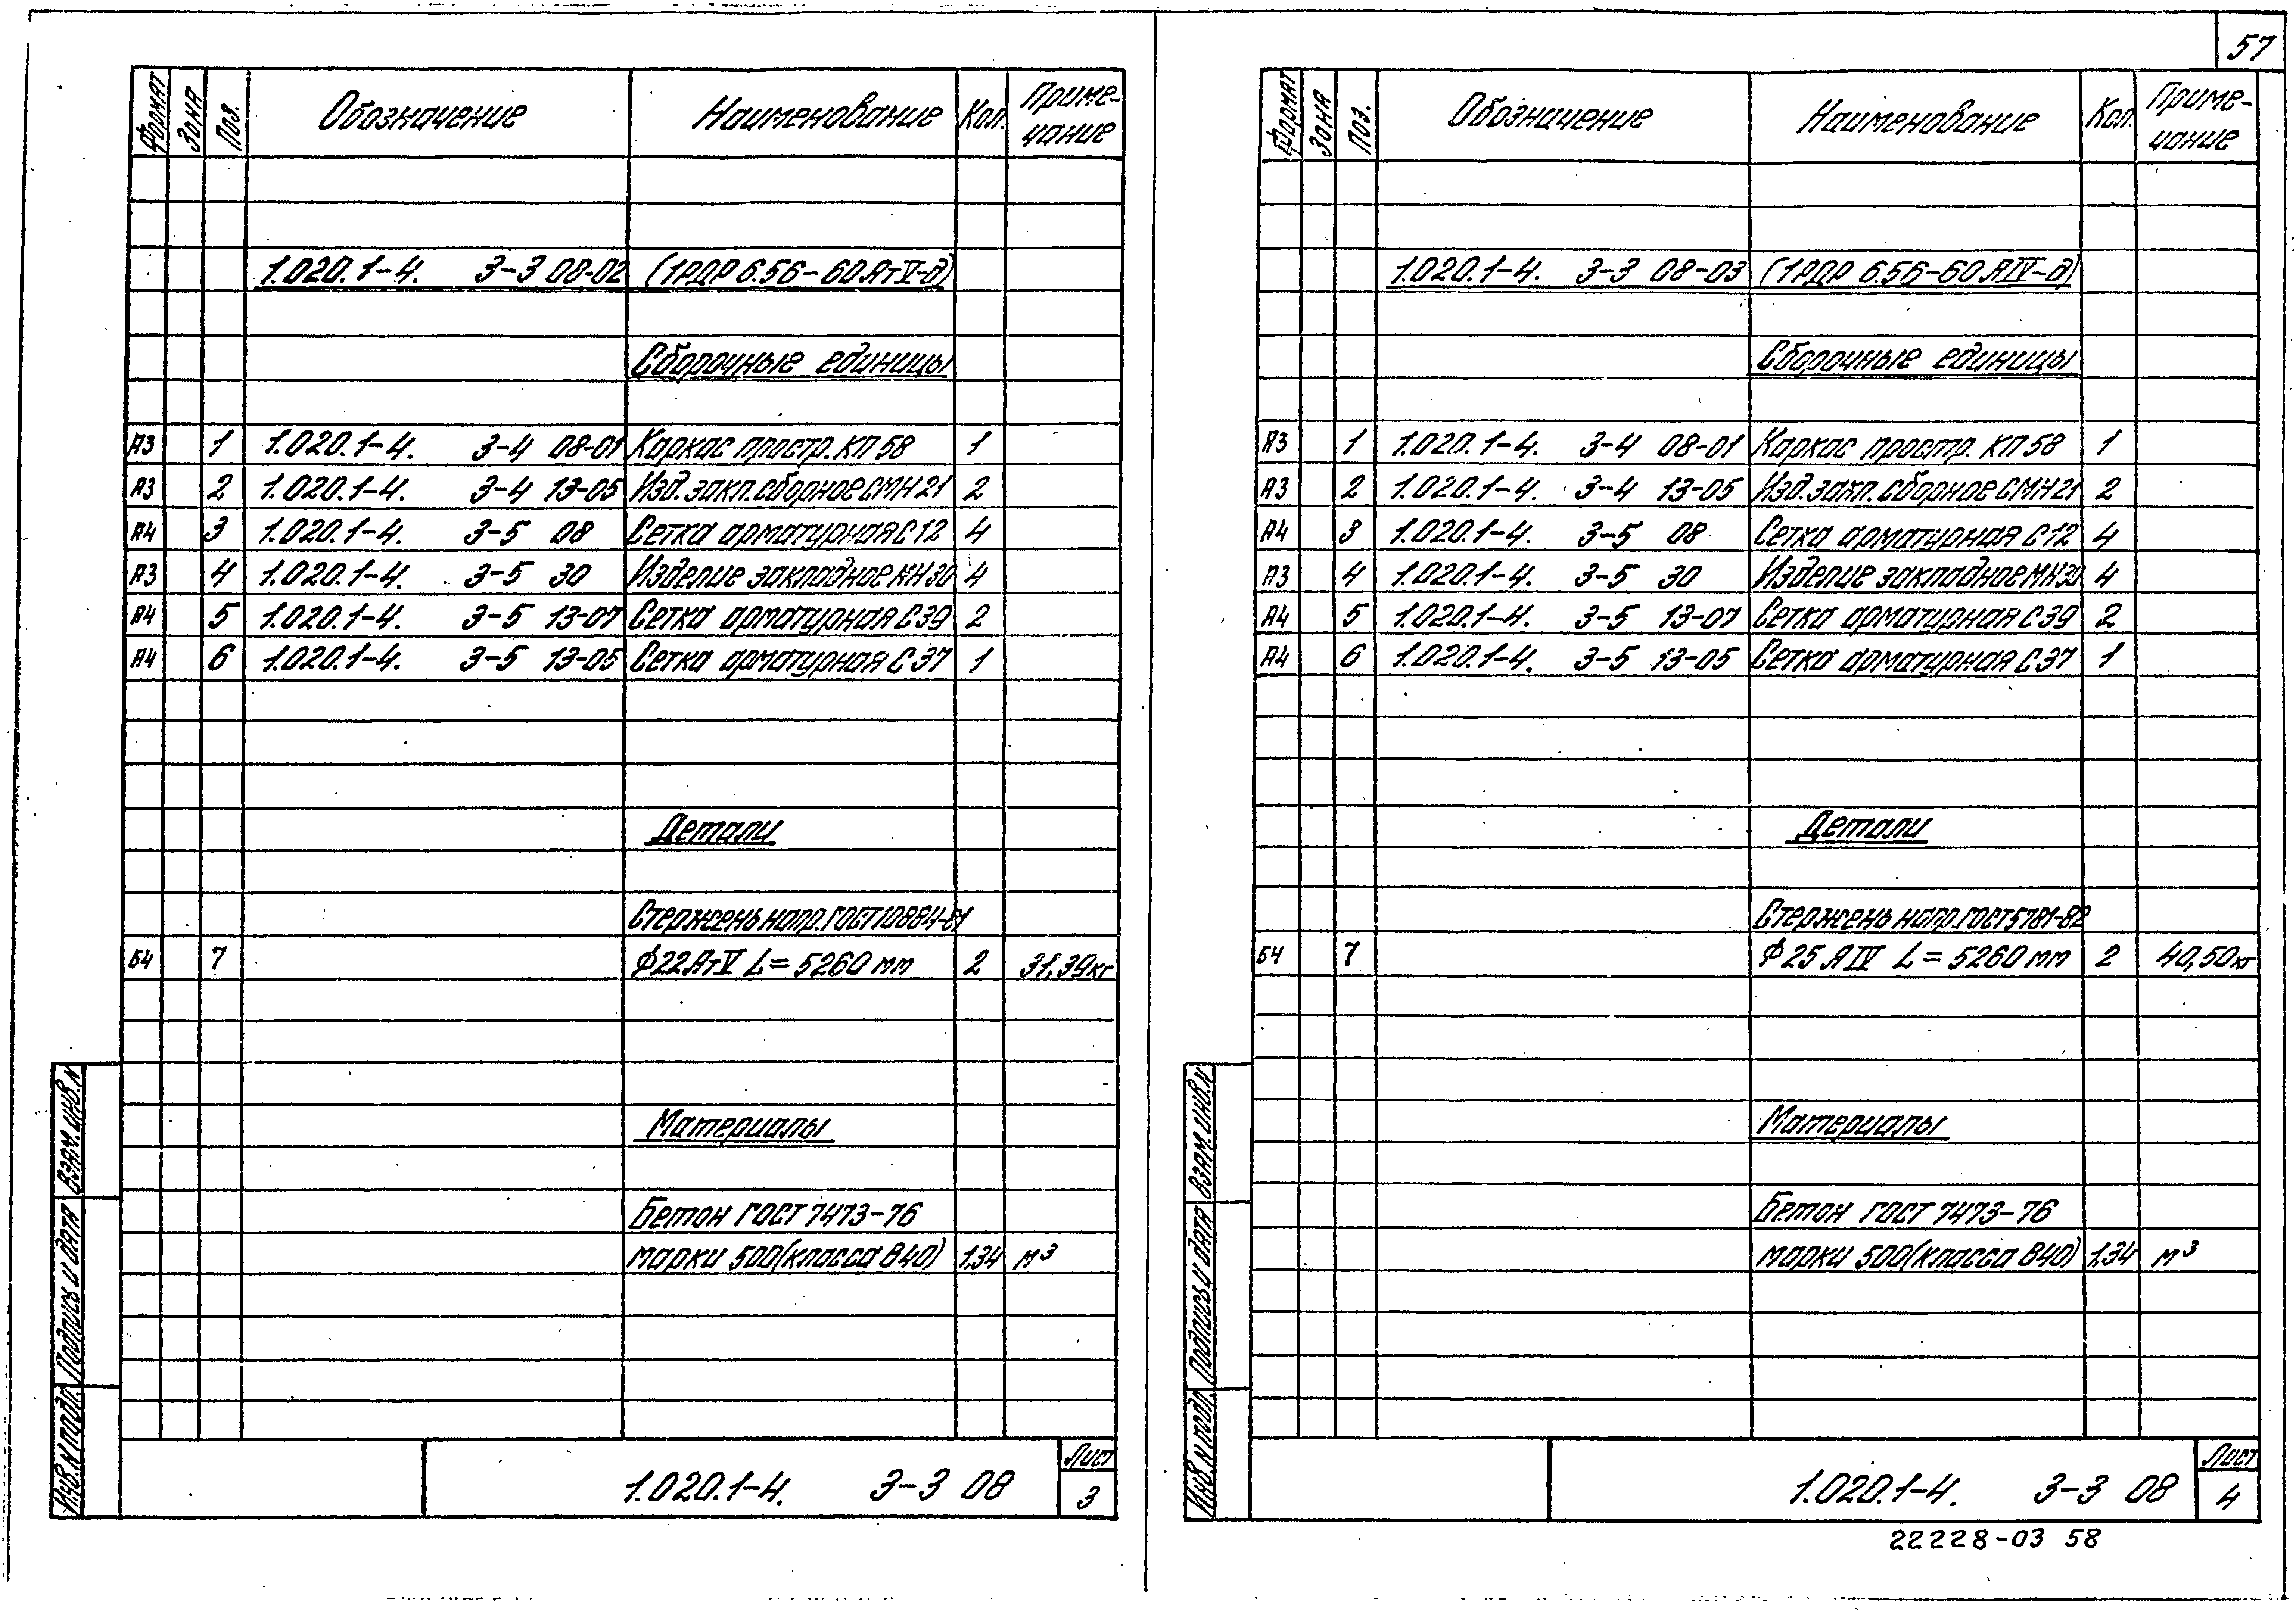 57
Формат Зона Поз. Обозначение Наименование Кол. Приме-
чание
1.020.1-4. 3-3 08-02 (1РДР 6.56-60АтV-д)
Сборочные единицы
А3 1 1.020.1-4. 3-4 08-01 Каркас простр. КП 58 1
А3 2 1.020.1-4. 3-4 13-05 Изд. закл. сборное СМН 21 2
А4 3 1.020.1-4. 3-5 08 Сетка арматурная С12 4
А3 4 1.020.1-4. 3-5 30 Изделие закладное МН 30 4
А4 5 1.020.1-4. 3-5 13-07 Сетка арматурная С 39 2
А4 6 1.020.1-4. 3-5 13-05 Сетка арматурная С 37 1
Детали
Стержень напр. ГОСТ 10884-81
Б4 7 Ф22АтV L=5260 мм 2 31,39кг
Материалы
Бетон ГОСТ 7473-76
марки 500(класса В40) 1,34 м³
Инв. N подл. Подпись и дата Взам. инв. N
1.020.1-4. 3-3 08
Лист
3
Формат Зона Поз. Обозначение Наименование Кол. Приме-
чание
1.020.1-4. 3-3 08-03 (1РДР 6.56-60АIV-д)
Сборочные единицы
А3 1 1.020.1-4. 3-4 08-01 Каркас простр. КП 58 1
А3 2 1.020.1-4. 3-4 13-05 Изд. закл. сборное СМН 21 2
А4 3 1.020.1-4. 3-5 08 Сетка арматурная С12 4
А3 4 1.020.1-4. 3-5 30 Изделие закладное МН 30 4
А4 5 1.020.1-4. 3-5 13-07 Сетка арматурная С 39 2
А4 6 1.020.1-4. 3-5 13-05 Сетка арматурная С 37 1
Детали
Стержень напр. ГОСТ 5781-82
Б4 7 Ф25 АIV L=5260 мм 2 40,50кг
Материалы
Бетон ГОСТ 7473-76
марки 500(класса В40) 1,34 м³
Инв. N подл. Подпись и дата Взам. инв. N
1.020.1-4. 3-3 08
Лист
4
22228-03 58